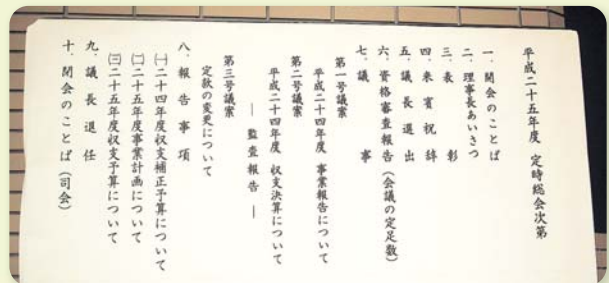 平成二十五年度 定時総会次第
一．開会のことば
二．理事長あいさつ
三．表彰
四．来賓祝辞
五．議長選出
六．資格審査報告（会議の定足数）
七．議事
第一号議案
平成二十四年度 事業報告について
第二号議案
平成二十四年度 収支決算について
― 監査報告 ―
第三号議案
定款の変更について
八．報告事項
㈠二十四年度収支補正予算について
㈡二十五年度事業計画について
㈢二十五年度収支予算について
九．議長退任
十．閉会のことば（司会）